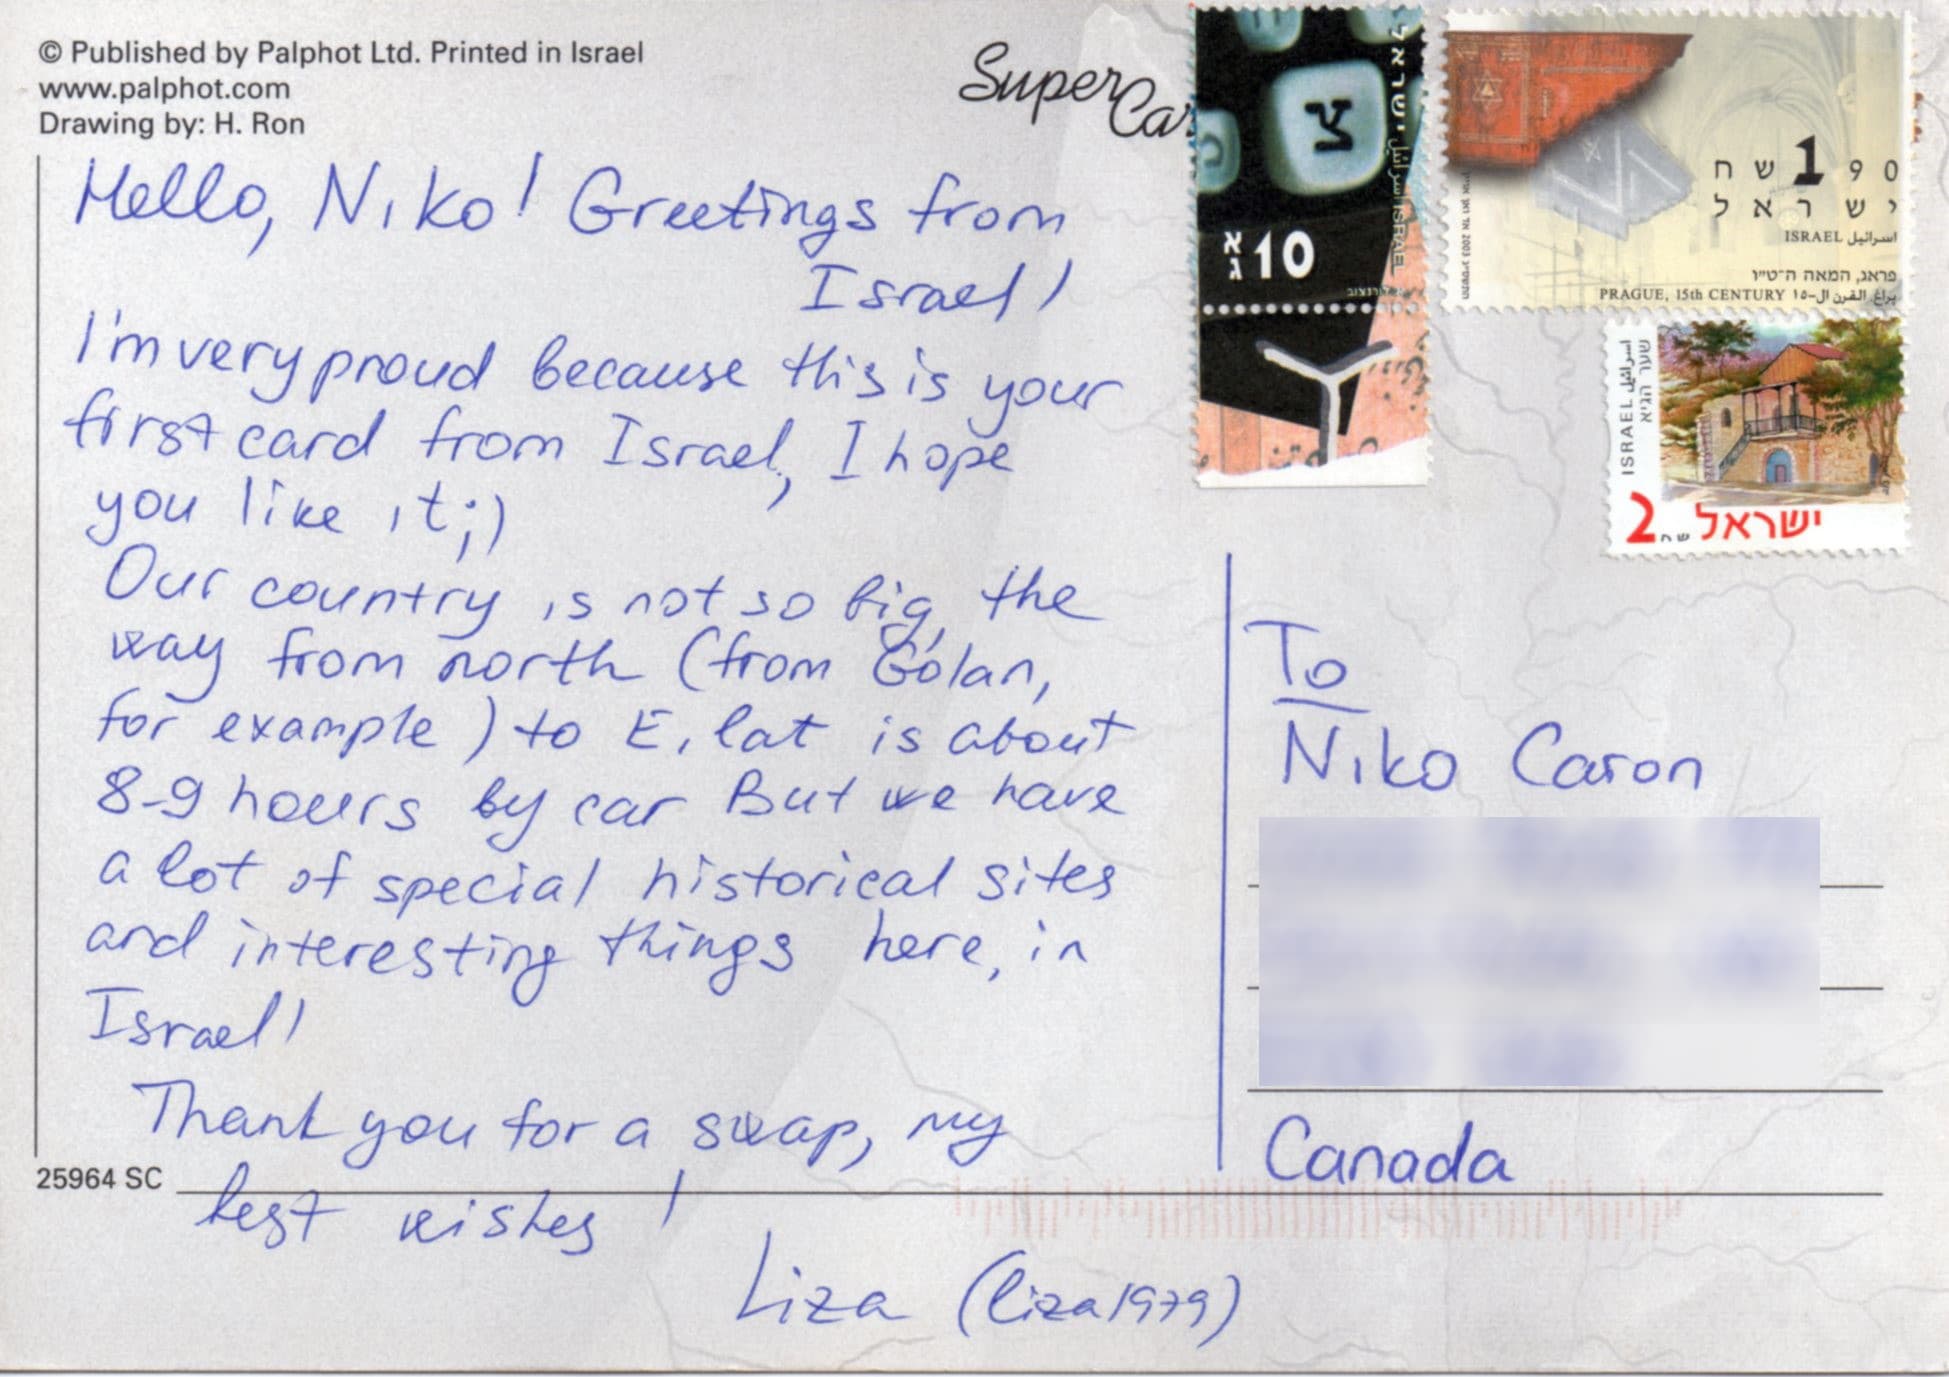 © Published by Palphot Ltd. Printed in Israel
www.palphot.com
Drawing by: H. Ron
Super
Car
Hello, Niko! Greetings from
Israel!
I'm very proud because this is your
first card from Israel, I hope
you like it;)
Our country is not so big, the
way from north (from Golan,
for example) to Eilat is about
8-9 hours by car But we have
a lot of special historical sites
and interesting things here, in
Israel!
Thank you for a swap, my
best wishes!
Liza (liza1979)
25964 SC
ישראל
اسرائيل ISRAEL
צ
א
ג
10
1.90 שח
ישראל
ISRAEL اسرائيل
פראג, המאה ה־ט״ו
PRAGUE, 15th CENTURY براغ القرن ال-١٥
ISRAEL اسرائيل
שער הגיא
2 ש״ח ישראל
To
Niko Caron
Canada